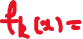 f_k(x) =